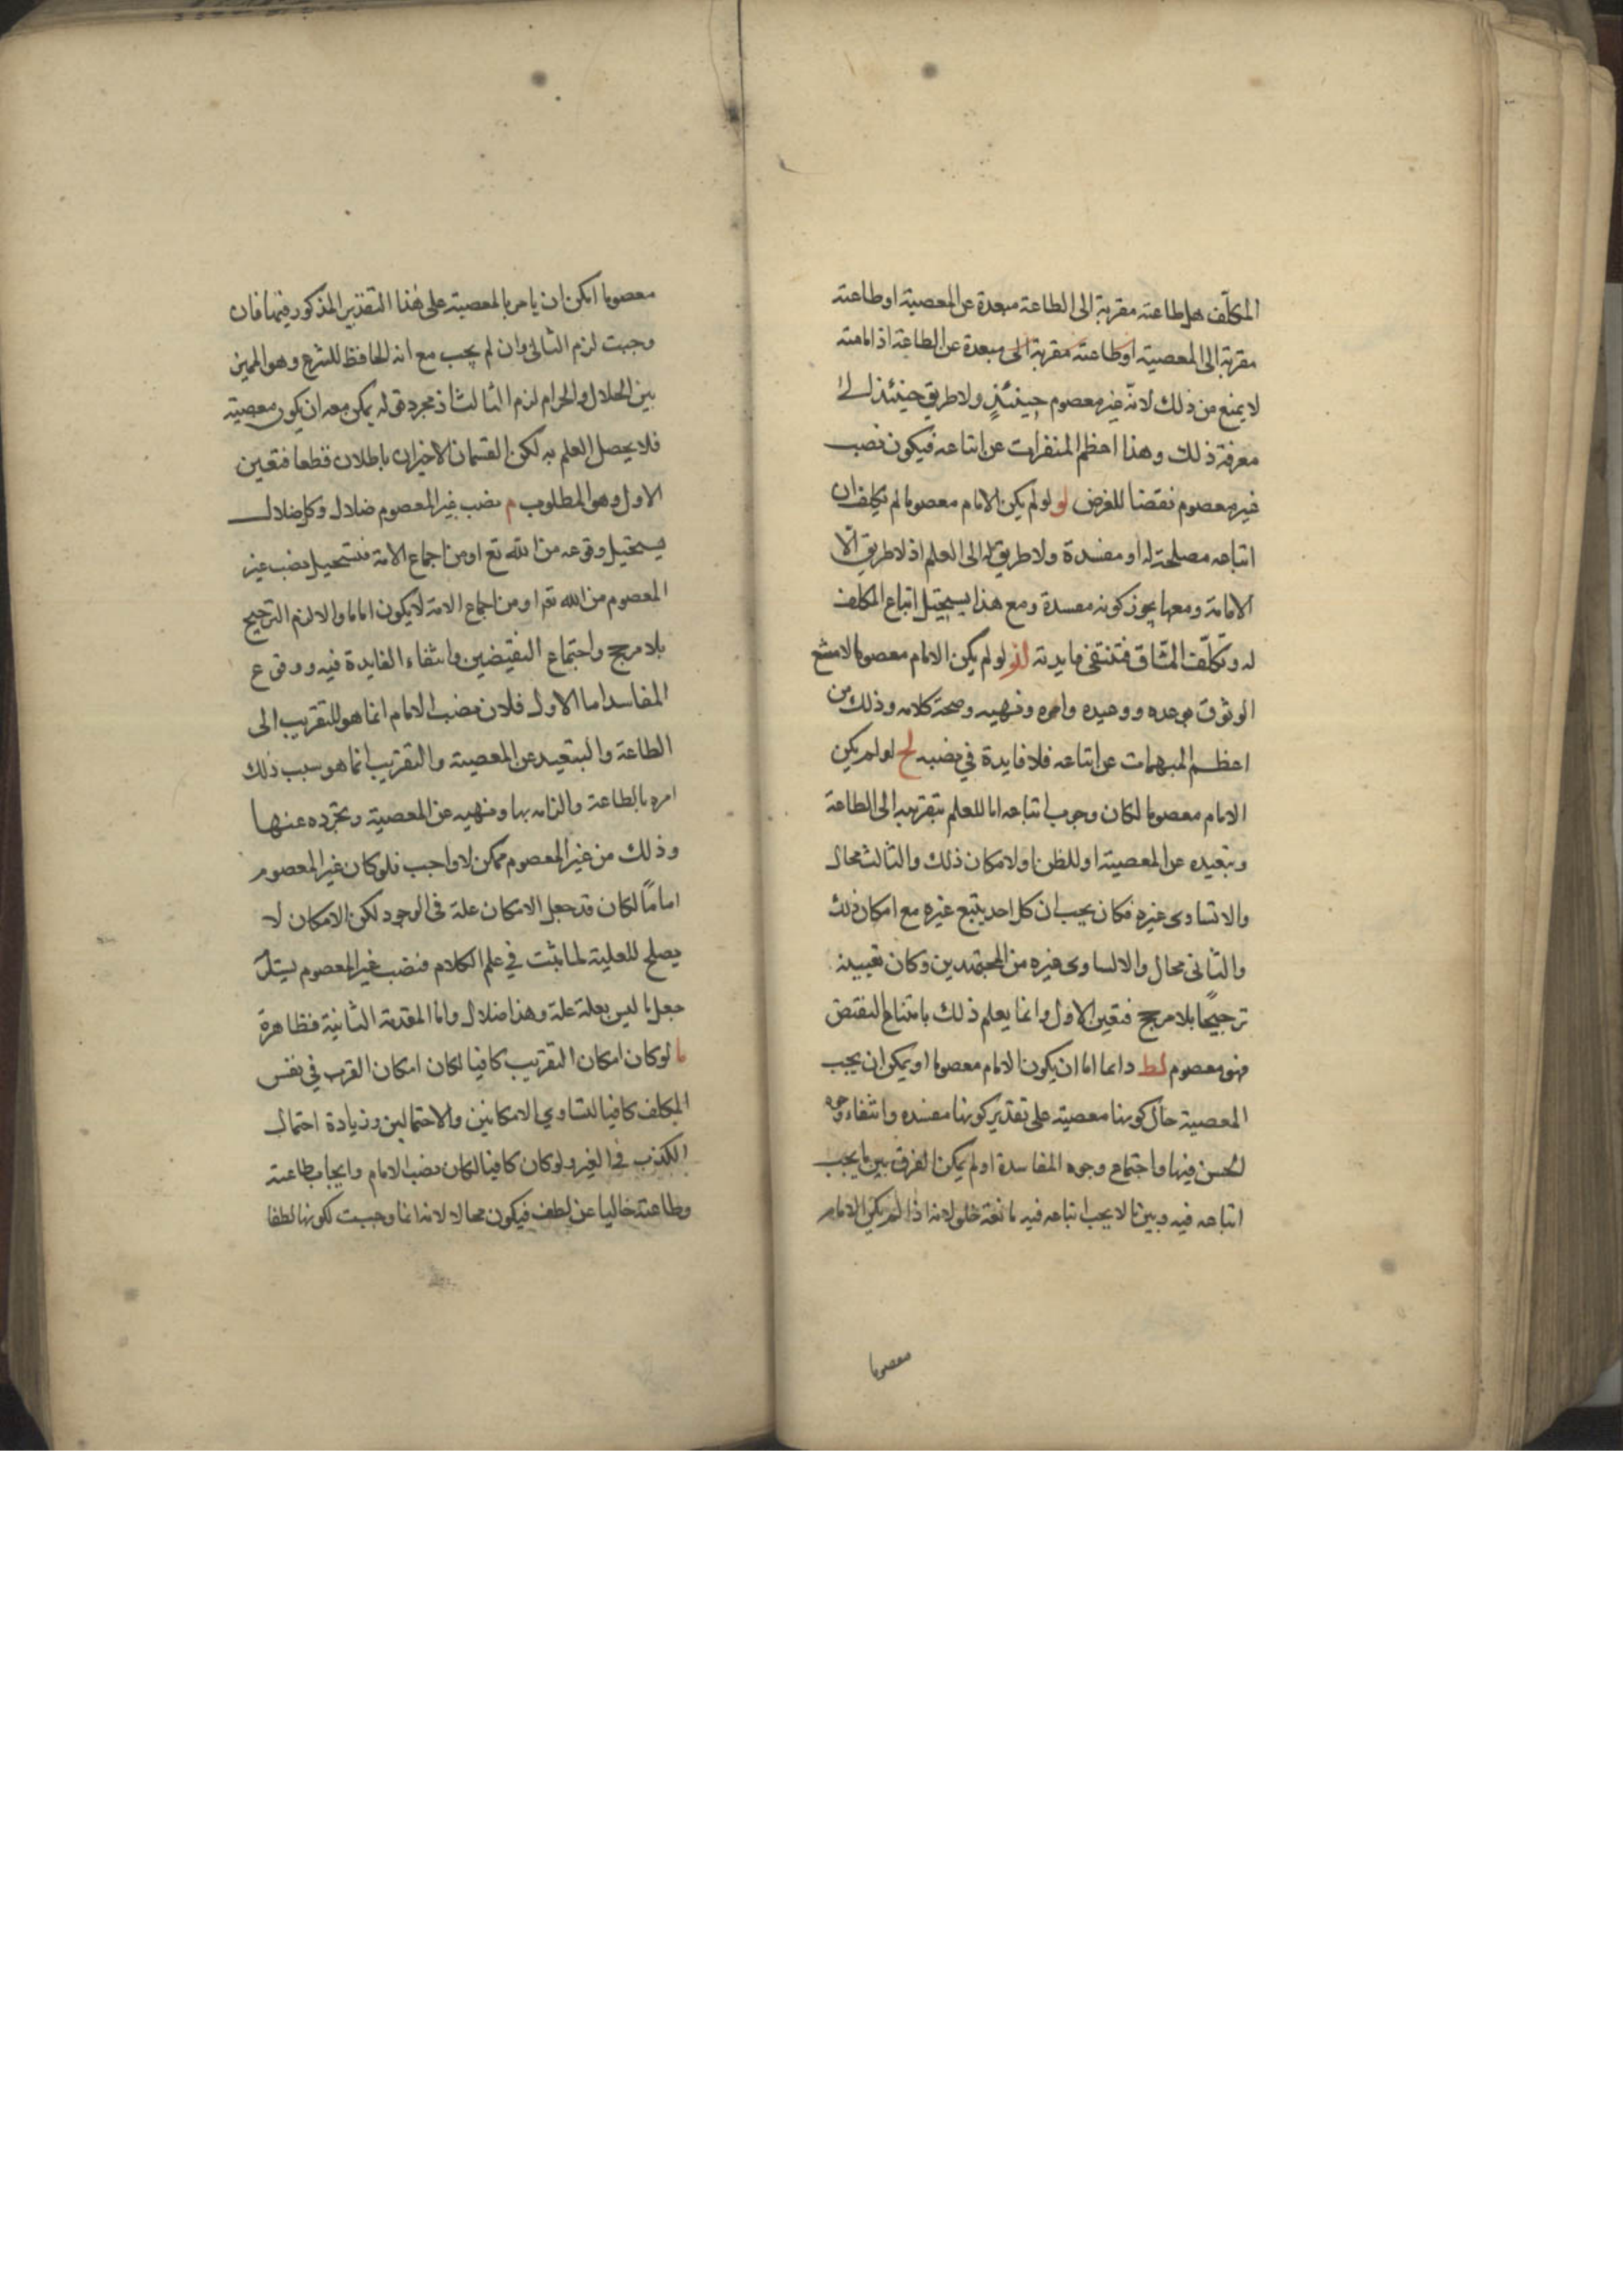 المكلّف هل طاعته مقربة الى الطاعة مبعدة عن المعصية او طاعته
مقربة الى المعصية او طاعته مقربة الى مبعدة عن الطاعة اذ امامته
لا يمنع من ذلك لانّه غير معصوم حينئذٍ ولا طريق حينئذ له الى
معرفة ذلك وهذا اعظم المنفرات عن اتباعه فيكون نصب
غير معصوم نقضا للغرض لو لو لم يكن الامام معصوما لم يكلف ان
اتباعه مصلحة له او مفسدة ولا طريق له الى العلم اذ لا طريق الّا
الامامة ومعها يجوز كونه مفسدة ومع هذا يستحيل اتباع المكلف
له وتكلّف المشاق فتنتفي فايدته لز لو لم يكن الامام معصوما لامتنع
الوثوق بوعده ووعيده وامره ونهيه وصحة كلامه وذلك من
اعظم المبهمات عن اتباعه فلا فايدة في نصبه لح لو لم يكن
الامام معصوما لكان وجوب اتباعه اما للعلم بتقريبه الى الطاعة
وتبعيده عن المعصية او للظن او لامكان ذلك والثالث محال
والا تساوى غيره فكان يجب ان كل احد يتبع غيره مع امكان ذلك
والثانى محال والا لساوى غيره من المجتهدين وكان تعيينه
ترجيحًا بلا مرجح فتعين الاول وانما يعلم ذلك بامتناع النقيض
فهو معصوم لط دائما اما ان يكون الامام معصوما او يمكن ان يجب
المعصية حال كونها معصية على تقدير كونها مفسده وانتفاء وجوه
الحسن فيها واجتماع وجوه المفاسدة او لم يمكن الفرق بين ما يجب
اتباعه فيه وبين ما لا يجب اتباعه فيه مانعة خلو لانه اذا لم يكن الامام
معصوما
معصوما امكن ان يامر بالمعصية على هذا التقدير المذكور فيها فان
وجبت لزم الثانى وان لم يجب مع انه الحافظ للشرع وهو المميز
بين الحلال والحرام لزم الثالث اذ مجرد قوله يمكن معه ان يكون معصية
فلا يحصل العلم به لكن القسمان الاخيران باطلان قطعا فتعين
الاول وهو المطلوب م نصب غير المعصوم ضلال وكل ضلال
يستحيل وقوعه من الله تع او من اجماع الامة فتستحيل نصب غير
المعصوم من الله تع او من اجماع الامة لا يكون اماما والا لزم الترجيح
بلا مرجح واجتماع النقيضين وانتفاء الفايدة فيه ووقوع
المفاسد اما الاول فلان نصب الامام انما هو للتقريب الى
الطاعة والتبعيد عن المعصية والتقريب انما هو بسبب ذلك
امره بالطاعة والزامه بها ونهيه عن المعصية وتحرده عنها
وذلك من غير المعصوم ممكن لا واجب فلو كان غير المعصوم
امامًا لكان قد جعل الامكان علة فى الوجود لكن الامكان لا
يصلح للعلية لما يثبت في علم الكلام فنصب غير المعصوم يستلزم
جعل ما ليس بعلة علة وهذا ضلال واما المقدمة الثانية فظاهرة
ما لو كان امكان التقريب كافيا لكان امكان القرب في نفس
المكلف كافيا لتساوي الامكانين والاحتمالين وزيادة احتمال
الكذب فى الغير ولو كان كافيا لكان نصب الامام وايجاب طاعته
وطاعته خاليا عن لطف فيكون محالا لانه انما وجبت لكونها لطفا